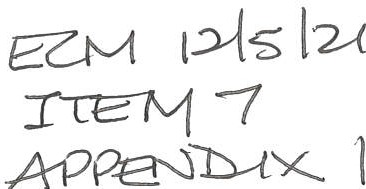 EZM 12/5/21
ITEM 7
APPENDIX 1